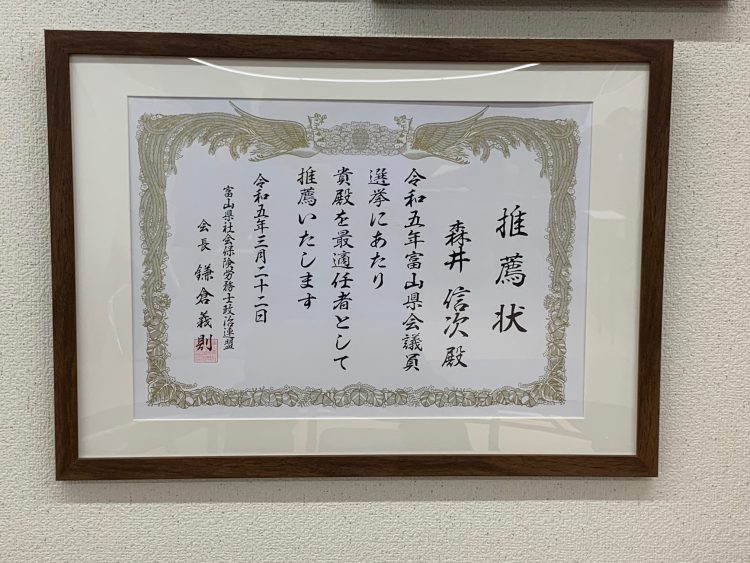 推薦状
森井 信次 殿
令和五年富山県会議員
選挙にあたり
貴殿を最適任者として
推薦いたします
令和五年三月二十二日
富山県社会保険労務士政治連盟
会長 鎌倉義則